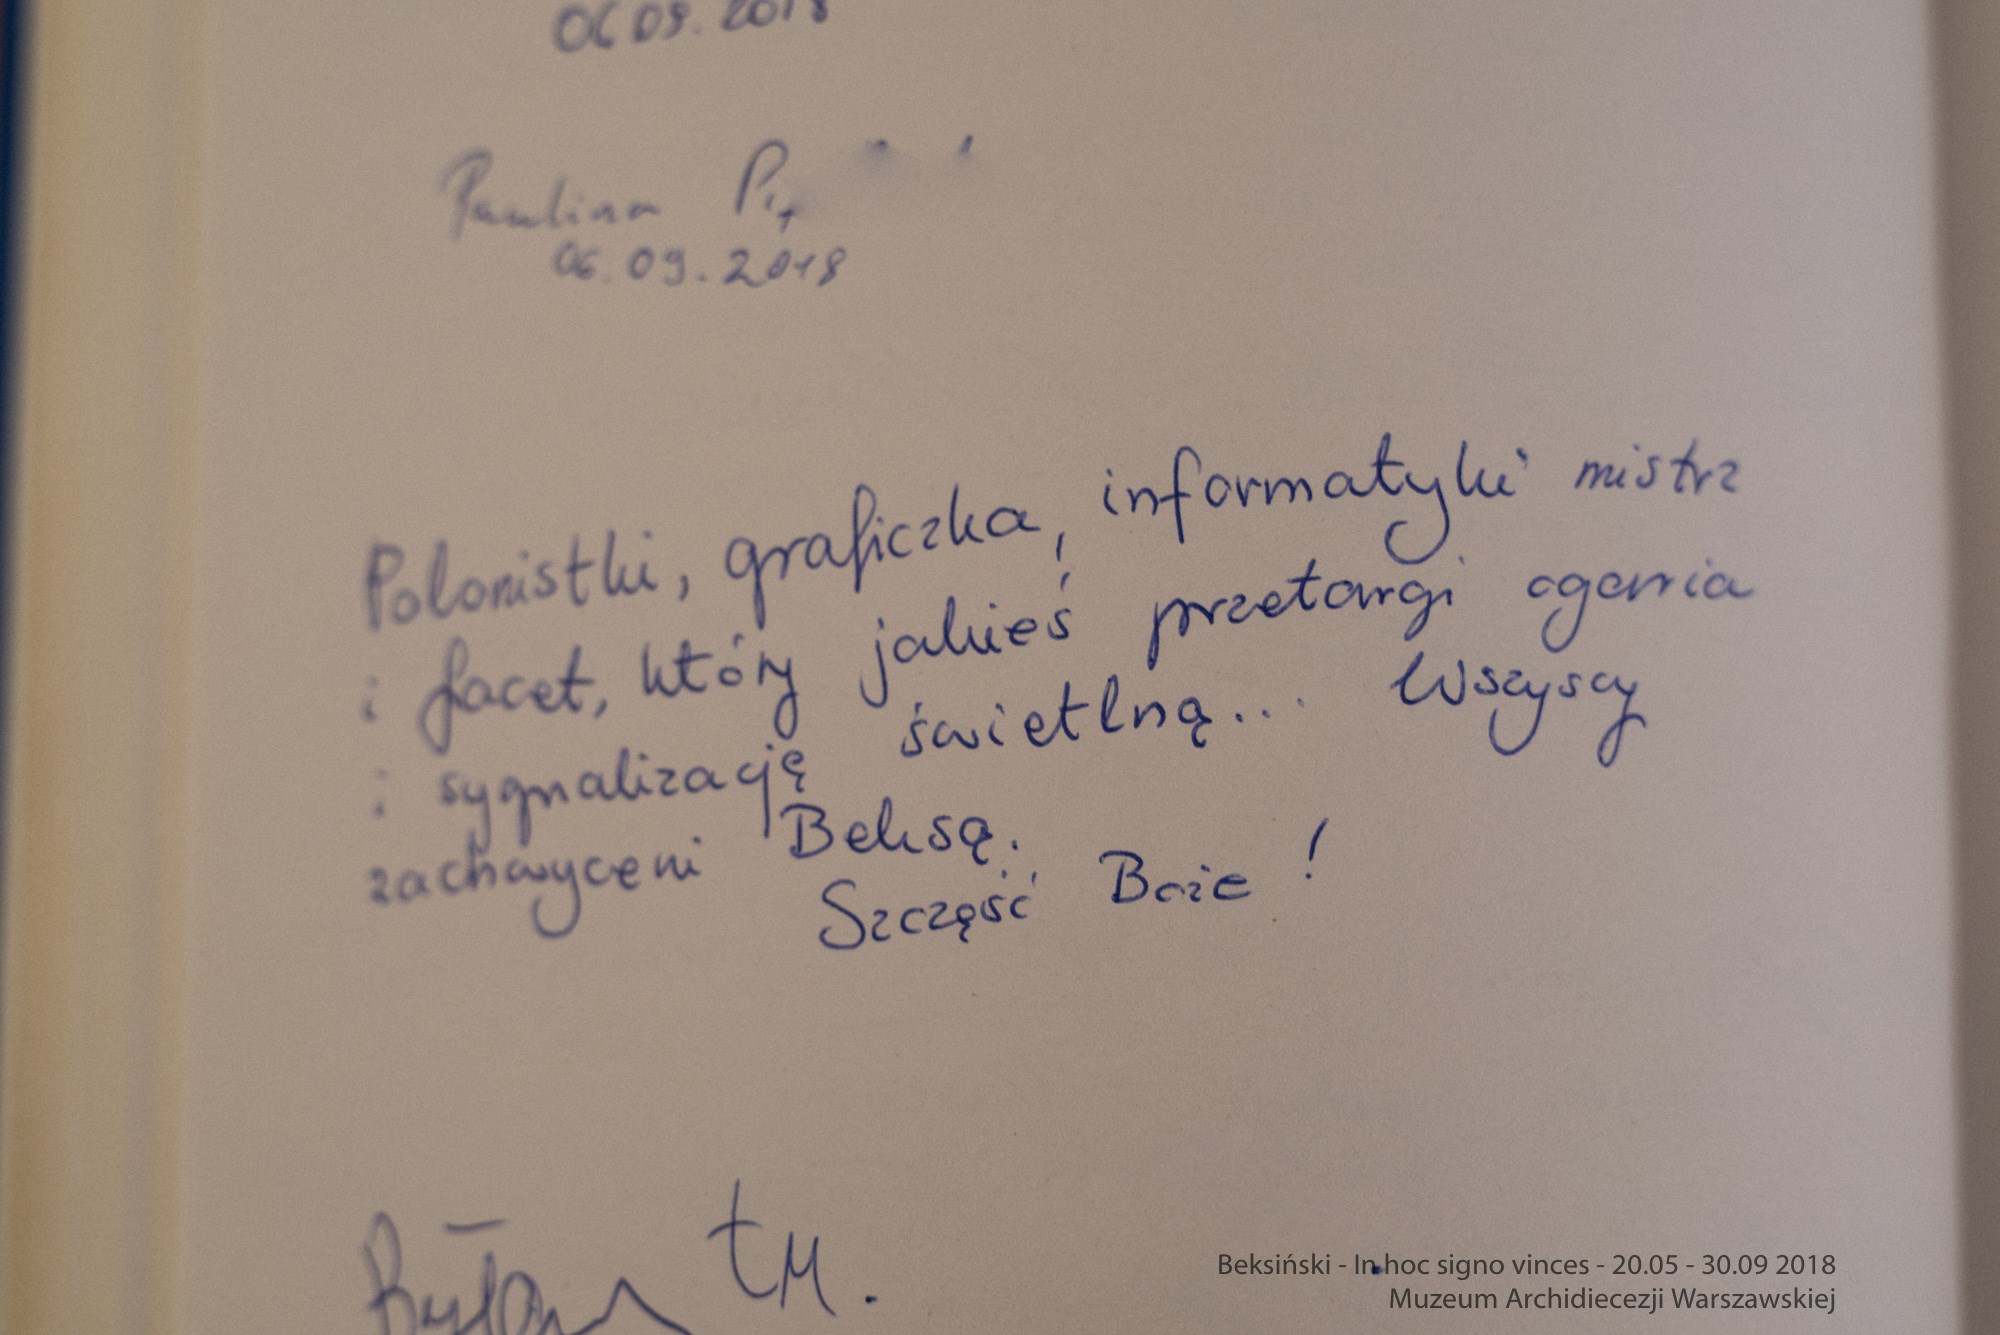 06 09. 2018
Paulina
06.09.2018
Polonistki, graficzka, informatyki mistrz
i facet, który jakieś przetargi ogarnia
i sygnalizację świetlną... Wszyscy
zachwyceni Beksą.
Szczęść Boże!
Była M.
Beksiński - In hoc signo vinces - 20.05 - 30.09 2018
Muzeum Archidiecezji Warszawskiej